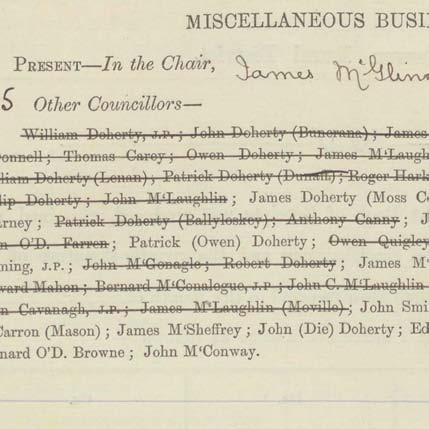 MISCELLANEOUS BUSI
PRESENT—In the Chair, James McGlin
5 Other Councillors—
William Doherty, J.P.; John Doherty (Buncrana); James
onnell; Thomas Carey; Owen Doherty; James M'Laugh
liam Doherty (Lenan); Patrick Doherty (Dunaff); Roger Hark
lip Doherty; John M'Laughlin; James Doherty (Moss Co
arney; Patrick Doherty (Ballyloskey); Anthony Canny; J
n O'D. Farren; Patrick (Owen) Doherty; Owen Quigley
ming, J.P.; John M'Gonagle; Robert Doherty; James M'
ward Mahon; Bernard M'Conalogue, J.P.; John C. M'Laughlin
n Cavanagh, J.P.; James M'Laughlin (Moville); John Smi
Carron (Mason); James M'Sheffrey; John (Die) Doherty; Ed
nard O'D. Browne; John M'Conway.